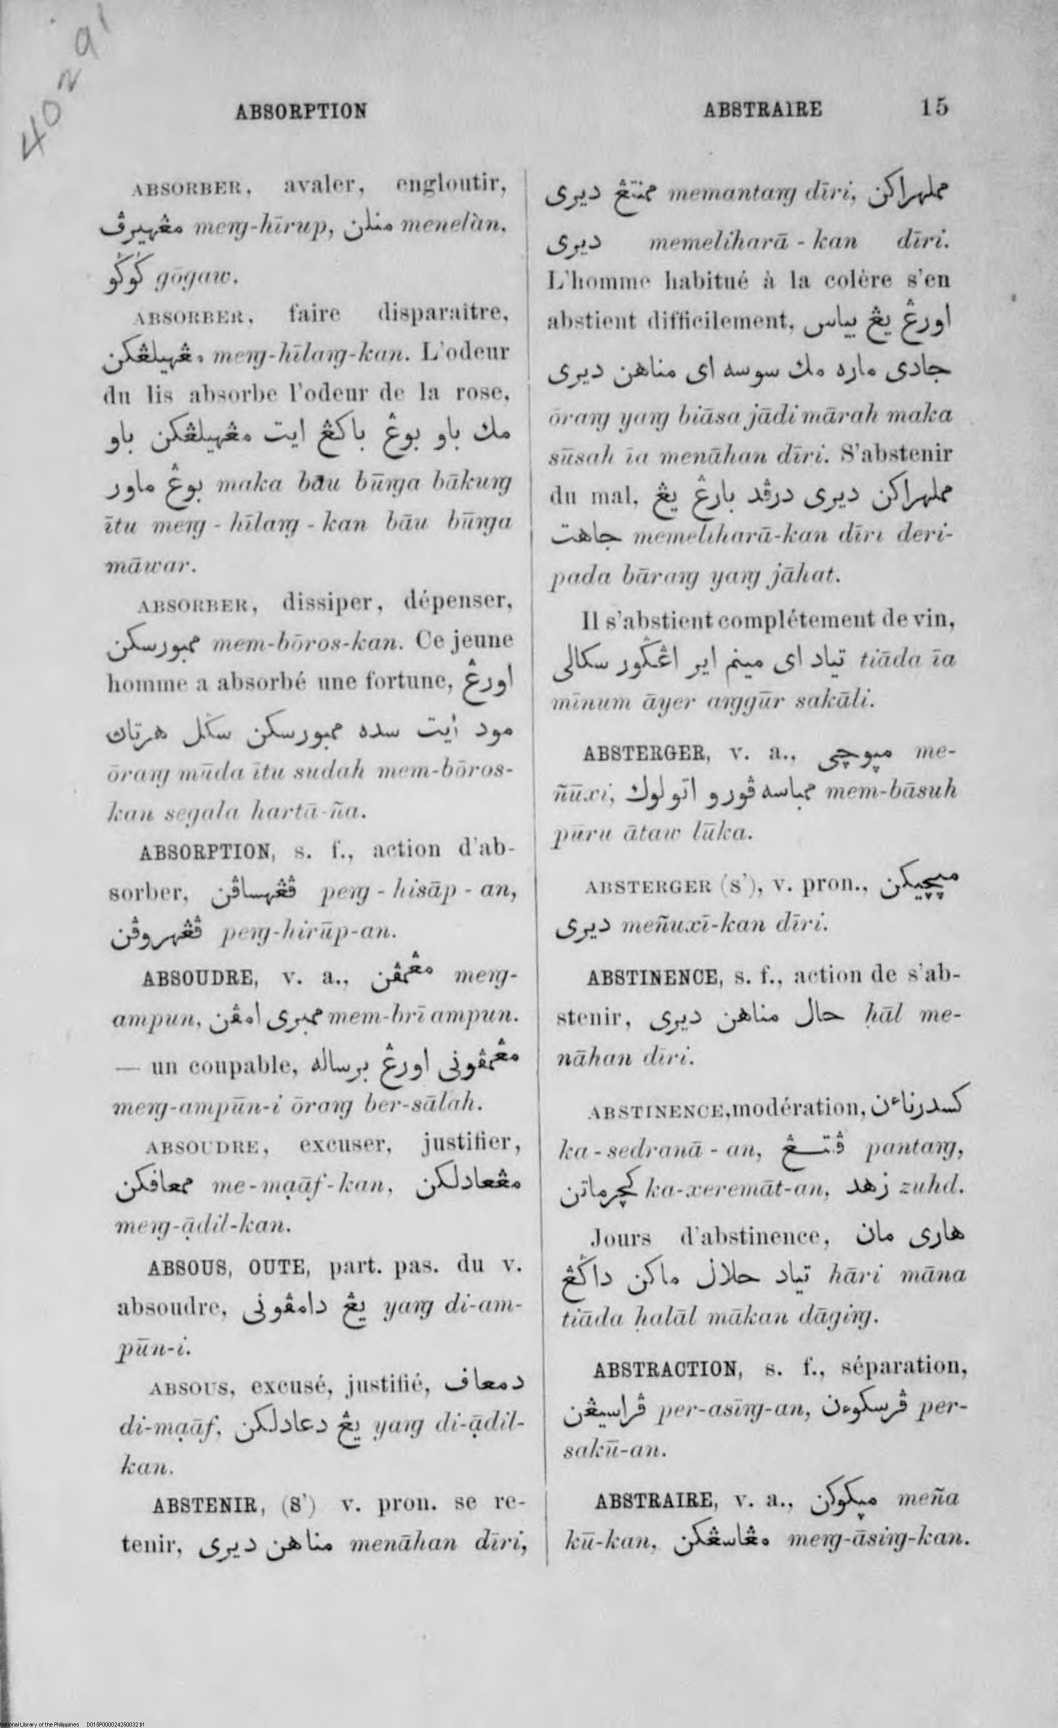 40291
ABSORPTION
ABSTRAIRE 15
ABSORBER, avaler, engloutir,
مڠهيرڤ meŋ-hīrup, منلن menelàn,
ݢوݢو gōgaw.
ABSORBER, faire disparaître,
مڠهيلڠكن meŋ-hīlaŋ-kan. L'odeur
du lis absorbe l'odeur de la rose,
مك باو بوڠ باكڠ ايت مڠهيلڠكن باو
بوڠ ماور maka bāu būŋa bākuŋ
ītu meŋ-hīlaŋ-kan bāu būŋa
māwar.
ABSORBER, dissiper, dépenser,
ممبورسكن mem-bōros-kan. Ce jeune
homme a absorbé une fortune, اورڠ
مود ايت سده ممبورسكن سݢل هرتاڽ
ōraŋ mūda ītu sudah mem-bōros-
kan segala hartā-ña.
ABSORPTION, s. f., action d'ab-
sorber, ڤڠهساڤن peŋ-hisāp-an,
ڤڠهروڤن peŋ-hirūp-an.
ABSOUDRE, v. a., مڠمڤن meŋ-
ampun, ممبري امڤن mem-brī ampun.
— un coupable, مڠمڤوني اورڠ برساله
meŋ-ampūn-i ōraŋ ber-sālah.
ABSOUDRE, excuser, justifier,
ممعافكن me-mạāf-kan, مڠعادلكن
meŋ-ạ̄dil-kan.
ABSOUS, OUTE, part. pas. du v.
absoudre, يڠ دامڤوني yaŋ di-am-
pūn-i.
ABSOUS, excusé, justifié, دمعاف
di-mạāf, يڠ دعادلكن yaŋ di-ạ̄dil-
kan.
ABSTENIR, (S') v. pron. se re-
tenir, مناهن ديري menāhan dīri,
ممنتڠ ديري memantaŋ dīri, مملهراكن
ديري memeliharā-kan dīri.
L'homme habitué à la colère s'en
abstient difficilement, اورڠ يڠ بياس
جادي ماره مك سوسه اي مناهن ديري
ōraŋ yaŋ biāsa jādi mārah maka
sūsah īa menāhan dīri. S'abstenir
du mal, مملهراكن ديري درڤد بارڠ يڠ
جاهت memeliharā-kan dīri deri-
pada bāraŋ yaŋ jāhat.
Il s'abstient complétement de vin,
تياد اي مينم اير اڠݢور سكالي tiāda īa
mīnum āyer aŋgūr sakāli.
ABSTERGER, v. a., مڽوچي me-
ñūxi, ممباسه ڤورو اتو لوك mem-bāsuh
pūru ātaw lūka.
ABSTERGER (S'), v. pron., مڽچيكن
ديري meñuxī-kan dīri.
ABSTINENCE, s. f., action de s'ab-
stenir, حال مناهن ديري ḥāl me-
nāhan dīri.
ABSTINENCE, modération, كسدرناءن
ka-sedranā-an, ڤنتڠ pantaŋ,
كچرماتن ka-xeremāt-an, زهد zuhd.
Jours d'abstinence, هاري مان
تياد حلال ماكن داݢڠ hāri māna
tiāda ḥalāl mākan dāgiŋ.
ABSTRACTION, s. f., séparation,
ڤراسيڠن per-asīŋ-an, ڤرسكوءن per-
sakū-an.
ABSTRAIRE, v. a., مڽكوكن meña
kū-kan, مڠاسڠكن meŋ-āsiŋ-kan.
National Library of the Philippines